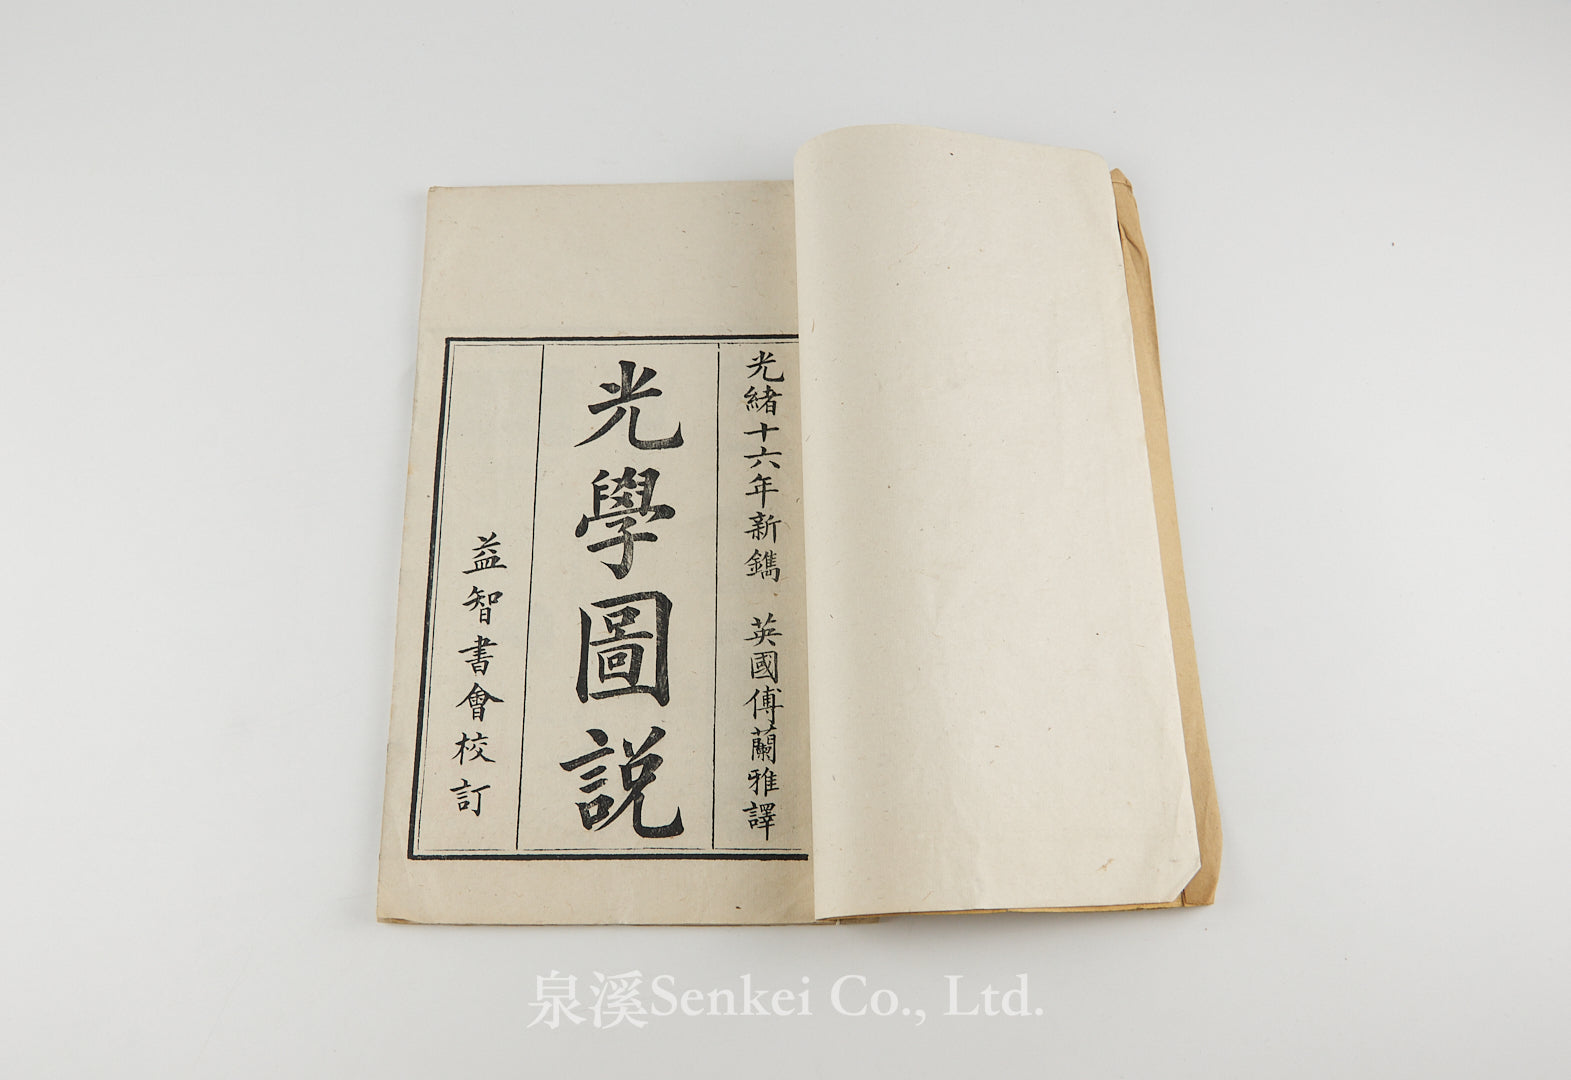 光緒十六年新鐫 英國傅蘭雅譯
光學圖說
益智書會校訂
泉溪Senkei Co., Ltd.